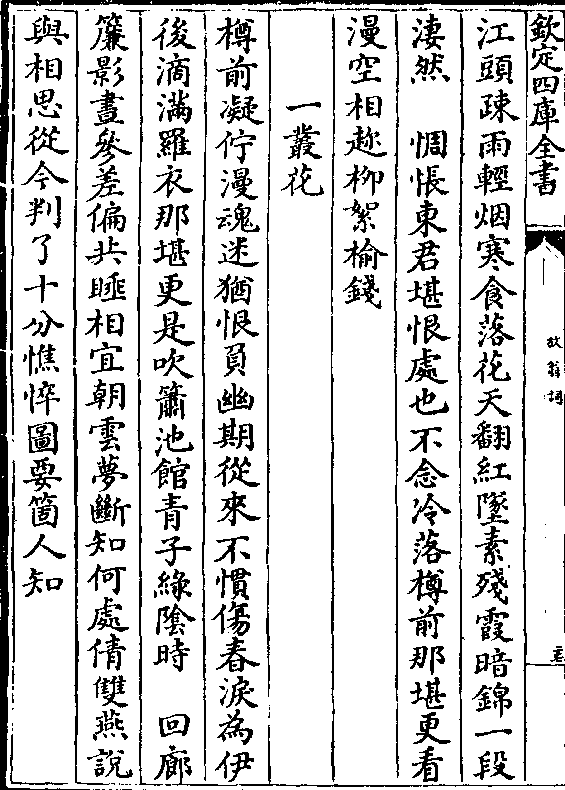 欽定四庫全書
放翁詞
江頭疎雨輕烟寒食落花天翻紅墜素殘霞暗錦一段
淒然　惆悵東君堪恨處也不念冷落樽前那堪更看
漫空相趂柳絮榆錢
一叢花
樽前凝佇漫魂迷猶恨負幽期從來不慣傷春淚為伊
後滴滿羅衣那堪更是吹簫池館青子綠陰時　回廊
簾影晝參差偏共睡相宜朝雲夢斷知何處倩雙燕說
與相思從今判了十分憔悴圖要箇人知